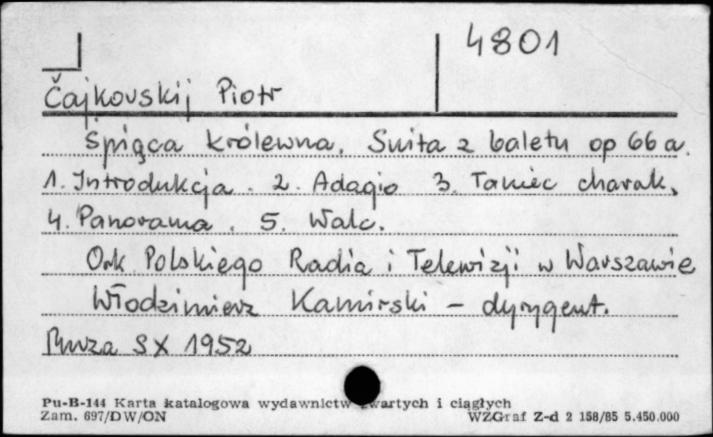 4801
Čajkovskij Piotr
Śpiąca królewna. Suita z baletu op 66 a.
1. Introdukcja. 2. Adagio 3. Taniec charak.
4. Panorama. 5. Walc.
Ork. Polskiego Radia i Telewizji w Warszawie
Włodzimierz Kamirski – dyrygent.
Muza SX 1952
Pu-B-144 Karta katalogowa wydawnictw zwartych i ciągłych
Zam. 697/DW/ON
WZGraf Z-d 2 158/85 5.450.000